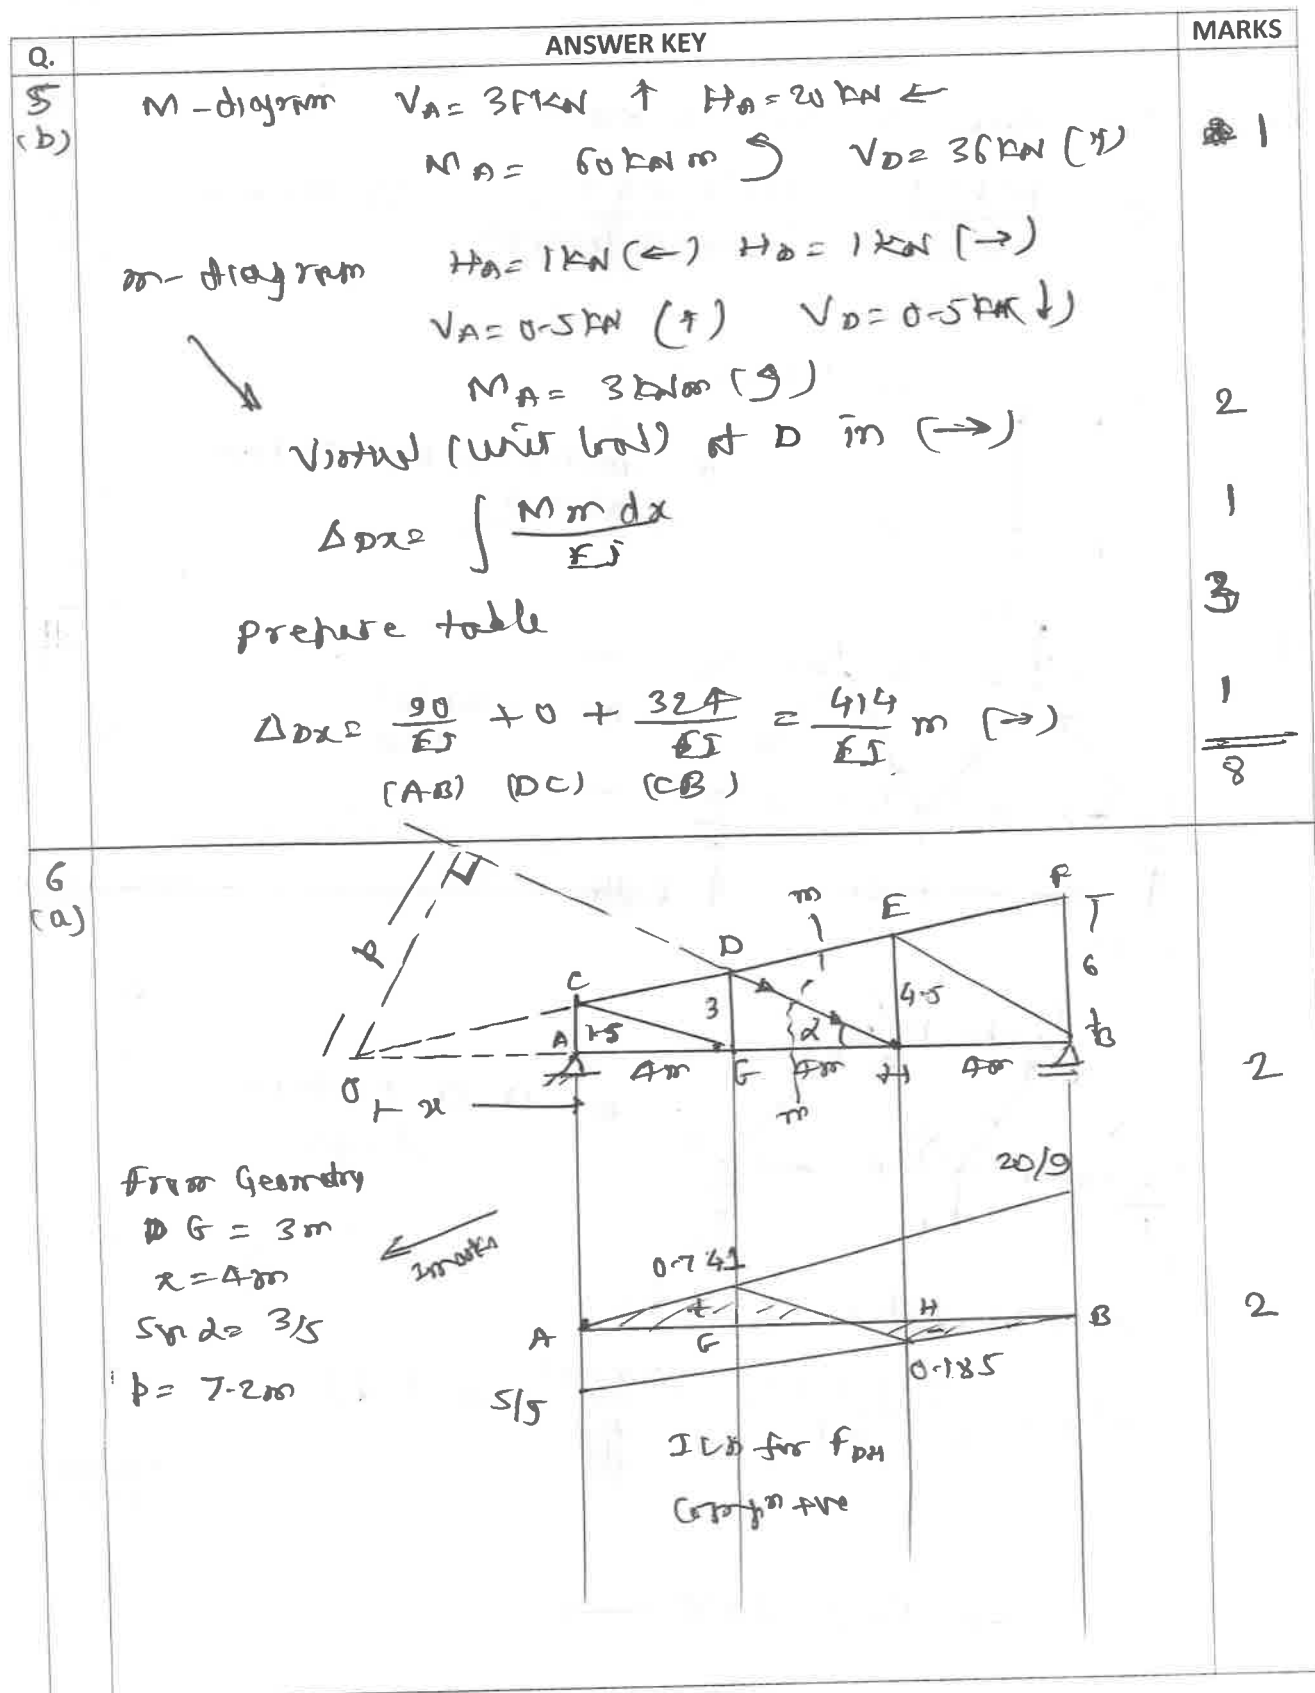 Q. ANSWER KEY MARKS
5
(b)
M-diagram VA = 36KN ↑ HA = 20 KN ←
MA = 60 KN m VD = 36 KN (↑)
1
m-diagram HA = 1KN (←) HD = 1KN (→)
VA = 0.5 KN (↑) VD = 0.5 KN (↓)
MA = 3 KNm
2
Virtual (unit load) at D in (→)
ΔDx = ∫ M m dx / EI
1
Prepare table
3
ΔDx = 90/EI + 0 + 324/EI = 414/EI m (→)
1
(AB) (DC) (CB)
8
6
(a)
m
E
F
D
p
C
6
3
4.5
A
1.5
α
B
4m
G
4m
H
4m
2
O
x
m
20/9
From Geometry
DG = 3m
x = 4m
2marks
0.741
Sin α = 3/5
+
H
A
G
-
B
2
p = 7.2m
0.185
5/9
ILD for FDH
Compn +ve